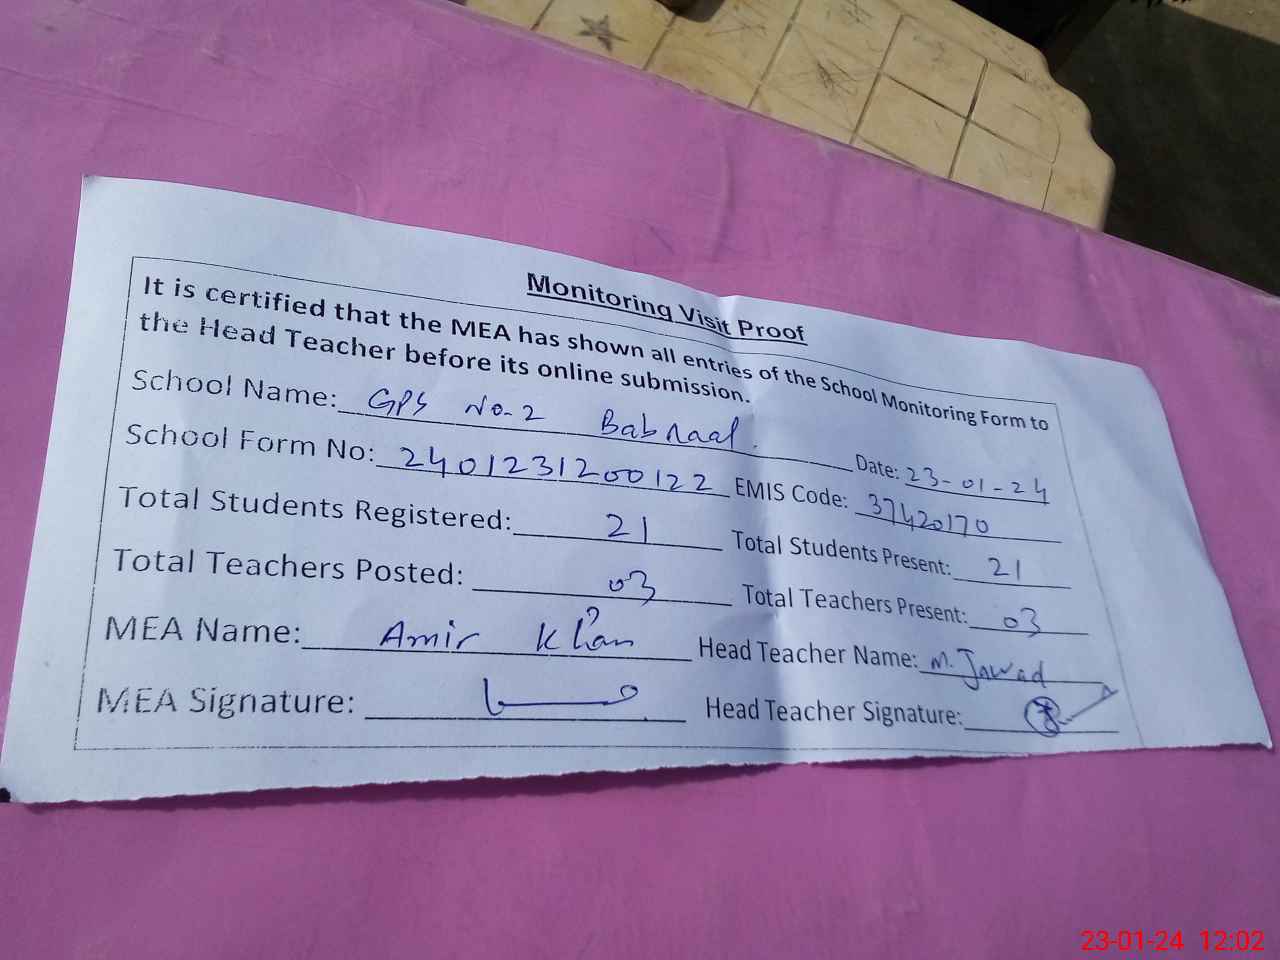 Monitoring Visit Proof
It is certified that the MEA has shown all entries of the School Monitoring Form to
the Head Teacher before its online submission.
School Name: GPS No-2 Babraal. Date: 23-01-24
School Form No: 2401231200122 EMIS Code: 37420170
Total Students Registered: 21 Total Students Present: 21
Total Teachers Posted: 03 Total Teachers Present: 03
MEA Name: Amir Khan Head Teacher Name: M. Jawad
MEA Signature: Head Teacher Signature:
23-01-24 12:02